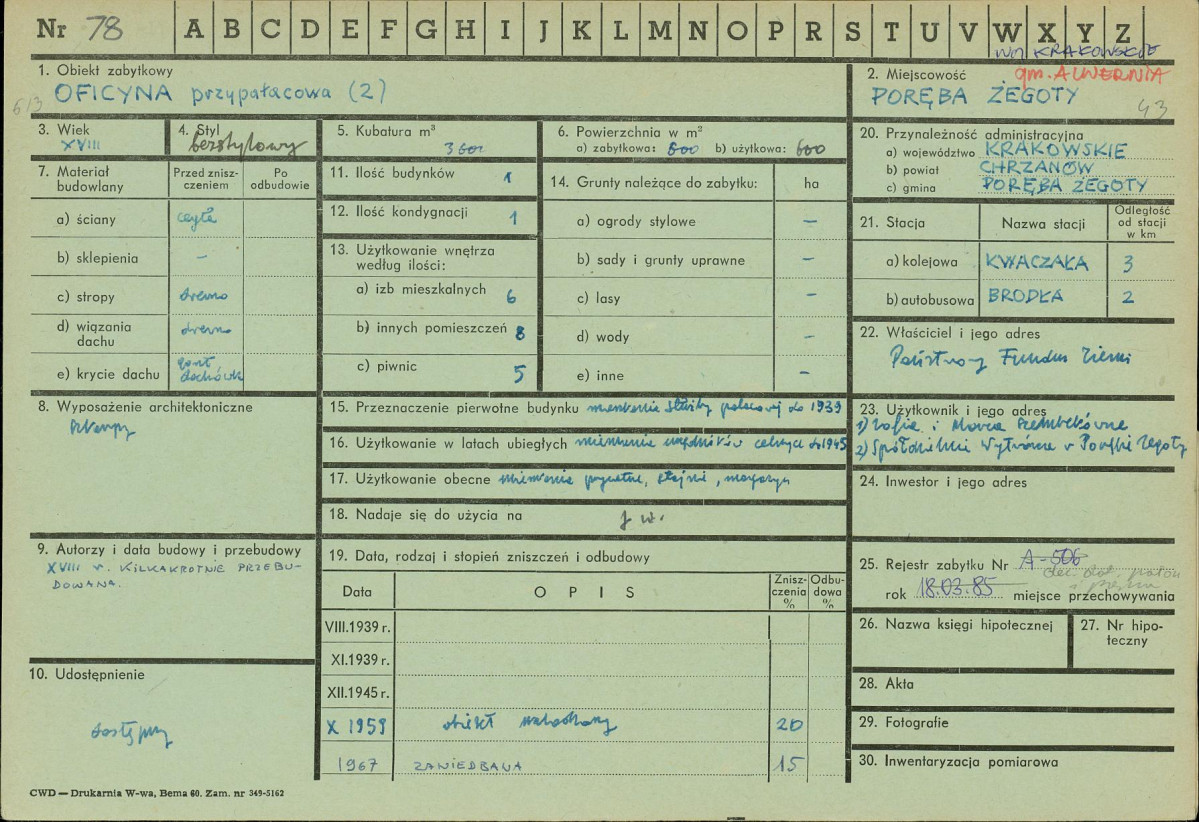 Nr 78 A B C D E F G H I J K L M N O P R S T U V W X Y Z
woj KRAKOWSKIE
1. Obiekt zabytkowy
OFICYNA przypałacowa (2)
613
2. Miejscowość gm. ALWERNIA
PORĘBA ŻEGOTY
43
3. Wiek
XVIII
4. Styl
bezstylowy
5. Kubatura m³
3600
6. Powierzchnia w m²
a) zabytkowa: 600 b) użytkowa: 600
7. Materiał budowlany
Przed zniszczeniem
Po odbudowie
a) ściany cegła
b) sklepienia –
c) stropy drewno
d) wiązania dachu drewno
e) krycie dachu gont dachówka
8. Wyposażenie architektoniczne
szkarpy
9. Autorzy i data budowy i przebudowy
XVIII w. KILKAKROTNIE PRZEBU-
DOWANA.
10. Udostępnienie
dostępny
11. Ilość budynków 1
12. Ilość kondygnacji 1
13. Użytkowanie wnętrza
według ilości:
a) izb mieszkalnych 6
b) innych pomieszczeń 8
c) piwnic 5
14. Grunty należące do zabytku: ha
a) ogrody stylowe –
b) sady i grunty uprawne –
c) lasy –
d) wody –
e) inne –
15. Przeznaczenie pierwotne budynku mieszkania służby pałacowej do 1939
16. Użytkowanie w latach ubiegłych mieszkania urzędników celnych do 1945
17. Użytkowanie obecne mieszkania prywatne, stajnie, magazyn
18. Nadaje się do użycia na j. w.
19. Data, rodzaj i stopień zniszczeń i odbudowy
Data OPIS Zniszczenia % Odbudowa %
VIII.1939 r.
XI.1939 r.
XII.1945 r.
X 1959 obiekt 20
1967 ZANIEDBANA 15
20. Przynależność administracyjna
a) województwo KRAKOWSKIE
b) powiat CHRZANÓW
c) gmina PORĘBA ŻEGOTY
21. Stacja Nazwa stacji Odległość od stacji w km
a) kolejowa KWACZAŁA 3
b) autobusowa BRODŁA 2
22. Właściciel i jego adres
Państwowy Fundusz Ziemi
23. Użytkownik i jego adres
1) Zofia i Maria Szembekówne
2) Spółdzielnia Wytwórcza w Porębie Żegoty
24. Inwestor i jego adres
25. Rejestr zabytku Nr A-506
dec. dot. pałacu
rok 18.03.85 miejsce przechowywania
26. Nazwa księgi hipotecznej
27. Nr hipo-
teczny
28. Akta
29. Fotografie
30. Inwentaryzacja pomiarowa
CWD — Drukarnia W-wa, Bema 60. Zam. nr 349-5162